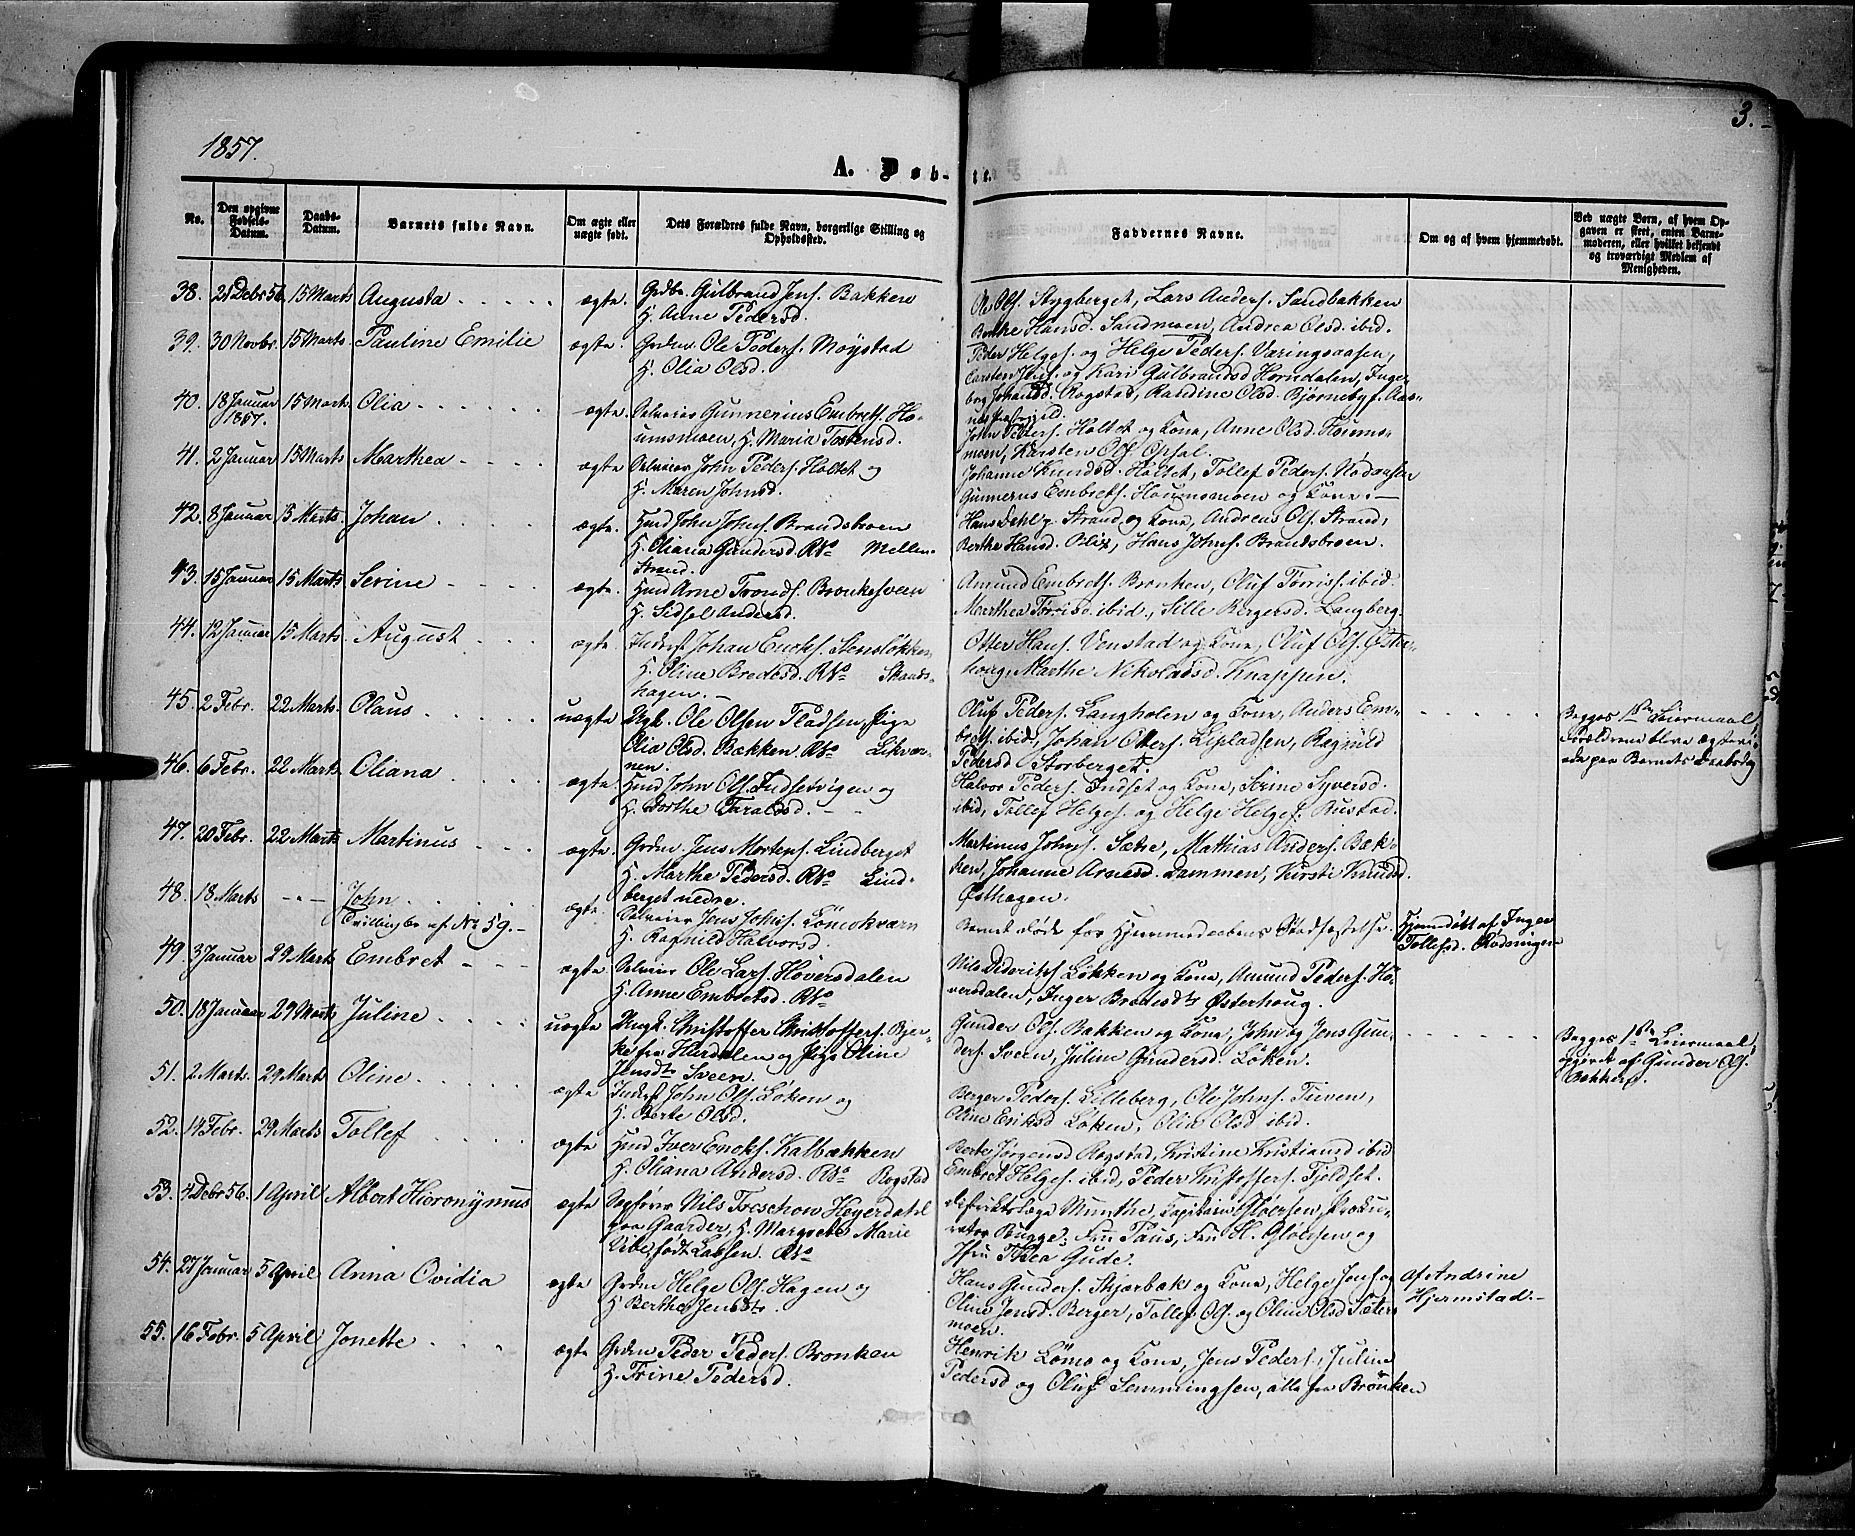 1857.
3.
A. Døb-
te.
No.
Den opgivne Fødsels-Datum.
Daabs-Datum.
Barnets fulde Navn.
Om ægte eller uægte født.
Dets Forældres fulde Navn, borgerlige Stilling og Opholdssted.
Faddernes Navne.
Om og af hvem hjemmedøbt.
Ved uægte Børn, af hvem Opgaven er skeet, enten Barnemoderen, eller hvilket bekjendt og troværdigt Medlem af Menigheden.
38. 21 Debr 56. 15 Marts Augusta ægte. Grdbr. Gulbrand Jens. Bakken
H. Anne Pedersd.
Ole Ols. Stygberget, Lars Anders. Sandbakken
Berthe Hansd. Sandmoen, Andrea Olsd. ibid.
39. 30 Novbr. 15 Marts. Pauline Emilie ægte. Grdm. Ole Peders. Moystad
H. Olia Olsd.
Peder Helges. og Helge Peders. Væringsaasen,
Carsten Jens. og Kari Gulbrandsd Horndalen, Inge-
borg Johansd. Rogstad, Randine Olsd. Bjørneby f. Aas-
40. 18 Januar 1857. 15 Marts. Olia ægte. Selveier Gunnerius Embrets. Ho-
umsmoen, H. Maria Tostensd.
John Peders. Holtet og Kone, Anne Olsd. Houms-
moen, Karsten Ols. Opsal.
41. 2 Januar 15 Marts Marthea ægte Selveier John Peders. Holtet og
H. Maren Johnsd.
Johanne Knudsd. Holtet, Tollef Peders. Nødaasen
Gunnerus Embrets. Houmsmoen og Kone. —
42. 8 Januar 15 Marts. Johan ægte. Husmd John Johns. Brandsbroen
H. Oliana Gundersd. Mellem-
Strand.
Hans Dehly. Strand og Kone, Andreas Ols. Strand,
Berthe Hansd. Blix, Hans Johns. Brandsbroen.
43. 15 Januar 15 Marts Serine ægte. Husmd Arne Tronds. Bronkesveen
H. Sidsel Andersd.
Amund Embrets. Bronken, Oluf Torris. ibid.
Marthea Torrisd. ibid., Sille Bergersd. Langberg.
44. 12 Januar 15 Marts. August ægte Inderst Johan Ericks. Stensløkken,
H. Oline Bredesd. Skands-
hagen. —
Otter Hans. Venstad og Kone, Oluf Ols. Øster-
houg, Marthe Nikolaisd. Knappen.
45. 2 Febr. 22 Marts. Olaus uægte Ungk. Ole Olsen Pladsen, Pige
Olia Olsd. Bækken. Løkvæ-
nen.
Oluf Peders. Langholen og Kone, Anders Em-
brets. ibid, Johan Otters. Lipladsen, Ragnild
Pedersd Storberget.
Begges 1ste Leiermaal,
Forældrene bleve ægtevi-
ede paa Barnets Daabsdag
46. 6 Febr. 22 Marts. Oliana ægte. Husmd John Ols. Indsetvigen og
H. Dorthe Taraldsd. —
Halvor Peders. Indset og Kone, Serine Syversd.
ibid, Tollef Helges. og Helge Helges. Rustad.
47. 20 Febr. 22 Marts Martinus ægte. Grdm. Jens Mortens. Lindberget
H. Marthe Pedersd. Lind-
berget nedre.
Martinus Johns. Sætre, Mathias Anders. Bæk-
ken, Johanne Arnesd. Dammen, Kirsti Knudsd.
Østhagen.
48. 18 Marts — John ægte. Selveier Jens Johns. Lömokværn
Tvillingbr. af No 59. — H. Ragnild Halvorsd.
Barnet døde før Hjemmedaabens Stadfæstelse.
Hjemdøbt af Inger
Tollefsd. Rødningen
49. 3 Januar 29 Marts Embret ægte Selveier Ole Lars. Höversdalen
H. Anne Embretsd.
Nils Dideriks. Løkken og Kone, Amund Peders. Hö-
versdalen, Inger Bredesdtr Østerhoug.
50. 18 Januar 29 Marts Juline uægte Ungk. Christoffer Christoffers. Bjer-
ke fra Hurdalen og Pige Oline
Jensdtr Sveen.
Gunder Ols. Bakken og Kone, John og Jens Gun-
ders. Sveen, Juline Gundersd. Løken.
Begges 1ste Leiermaal,
opgivet af Gunder Ols.
Bakken.
51. 2 Marts. 29 Marts Oline ægte Inderst John Ols. Løken og
H. Berte Olsd.
Berger Peders. Lilleberg, Ole Johns. Tuven,
Oline Eriksd Løken, Olia Olsd ibid.
52. 14 Febr. 29 Marts Tollef ægte Husmd Iver Ericks. Kalbækken
H. Oliana Andersd. Rogstad
Berte Jørgensd Rogstad, Kristine Kristiansd ibid
Embret Helges. ibid, Peder Kristoffers. Fjeldset.
53. 4 Debr 56. 1 April Albert Hieronymus ægte Sagfører Nils Treschow Heyerdahl
paa Gaarder, H. Margrete Marie
Vibe, født Lassen.
Distriktslæge Munthe, Kapitain Gløersen, Proku-
rator Bugge, Fru Paus, Fru H. Gløersen og
Jfru Thea Gude.
54. 27 Januar 5 April Anna Ovidia ægte Grdm Helge Ols. Hagen og
H. Berthe Jensdtr.
Hans Gunders. Skjærbæk og Kone, Helge Jens. og
Oline Jensd. Berger, Tollef Ols. og Olina Olsd Sæter-
moen.
Af Andrine
Hjermstad. —
55. 16 Febr. 5 April Jonette ægte Grdm Peder Peders. Bronken
H. Trine Pedersd.
Henrik Lömo og Kone, Jens Peders., Juline
Pedersd og Oluf Semmingsen, alle fra Bronken